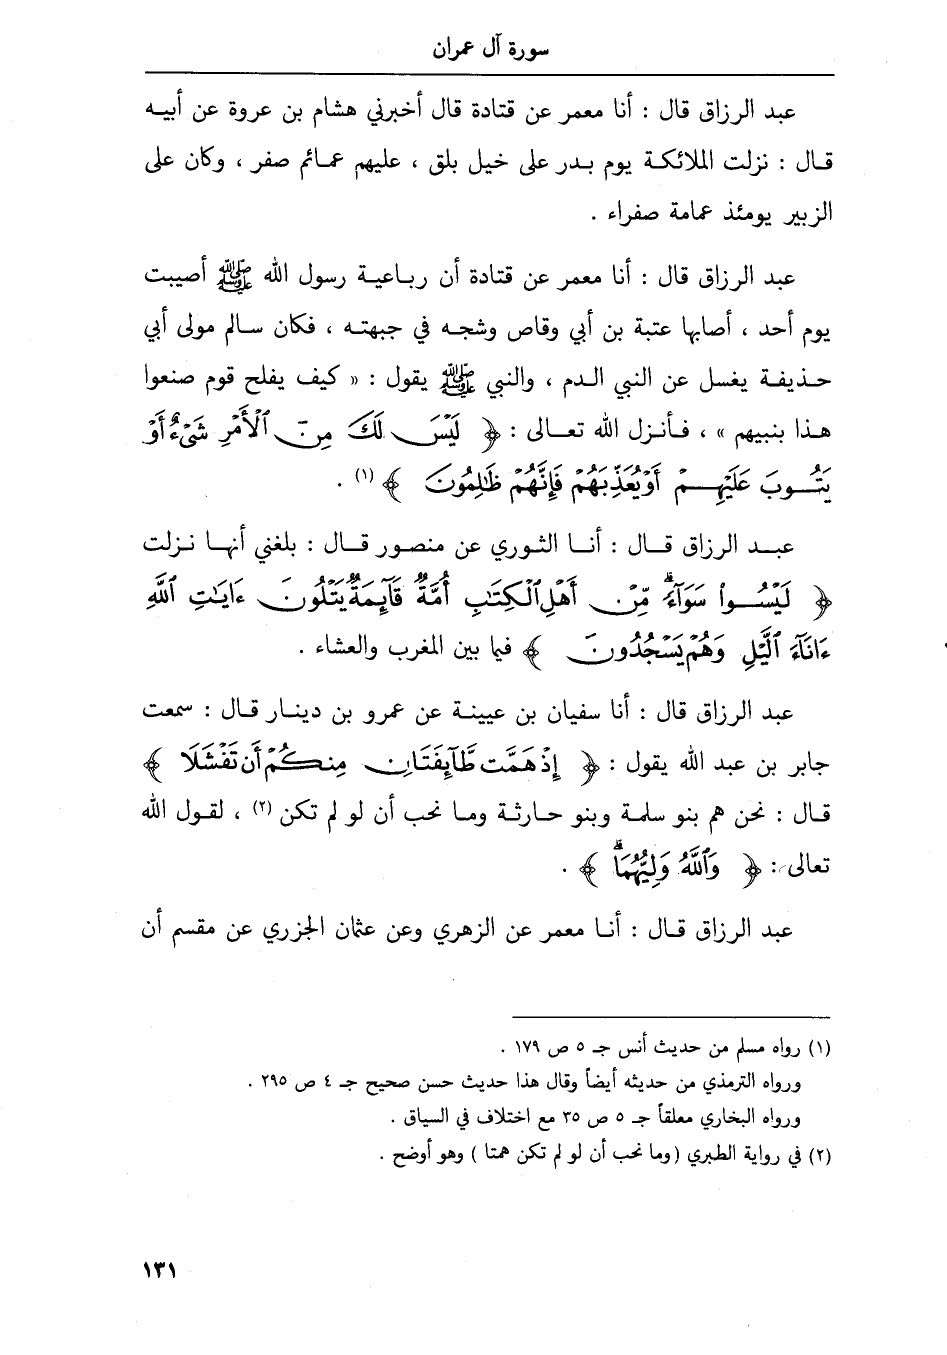 سورة آل عمران
عبد الرزاق قال : أنا معمر عن قتادة قال أخبرني هشام بن عروة عن أبيه
قال : نزلت الملائكة يوم بدر على خيل بلق ، عليهم عمائم صفر ، وكان على
الزبير يومئذ عمامة صفراء .
عبد الرزاق قال : أنا معمر عن قتادة أن رباعية رسول الله ﷺ أصيبت
يوم أحد ، أصابها عتبة بن أبي وقاص وشجه في جبهته ، فكان سالم مولى أبي
حذيفة يغسل عن النبي الدم ، والنبي ﷺ يقول : « كيف يفلح قوم صنعوا
هذا بنبيهم » ، فأنزل الله تعالى : ﴿ لَيْسَ لَكَ مِنَ ٱلْأَمْرِ شَىْءٌ أَوْ
يَتُوبَ عَلَيْهِمْ أَوْ يُعَذِّبَهُمْ فَإِنَّهُمْ ظَٰلِمُونَ ﴾ (١) .
عبد الرزاق قال : أنا الثوري عن منصور قال : بلغني أنها نزلت
﴿ لَيْسُوا۟ سَوَآءً ۗ مِّنْ أَهْلِ ٱلْكِتَٰبِ أُمَّةٌ قَآئِمَةٌ يَتْلُونَ ءَايَٰتِ ٱللَّهِ
ءَانَآءَ ٱلَّيْلِ وَهُمْ يَسْجُدُونَ ﴾ فيما بين المغرب والعشاء .
عبد الرزاق قال : أنا سفيان بن عيينة عن عمرو بن دينار قال : سمعت
جابر بن عبد الله يقول : ﴿ إِذْ هَمَّت طَّآئِفَتَانِ مِنكُمْ أَن تَفْشَلَا ﴾
قال : نحن هم بنو سلمة وبنو حارثة وما نحب أن لو لم تكن (٢) ، لقول الله
تعالى : ﴿ وَٱللَّهُ وَلِيُّهُمَا ۗ ﴾ .
عبد الرزاق قال : أنا معمر عن الزهري وعن عثمان الجزري عن مقسم أن
(١) رواه مسلم من حديث أنس جـ ٥ ص ١٧٩ .
ورواه الترمذي من حديثه أيضاً وقال هذا حديث حسن صحيح جـ ٤ ص ٢٩٥ .
ورواه البخاري معلقاً جـ ٥ ص ٣٥ مع اختلاف في السياق .
(٢) في رواية الطبري ( وما نحب أن لو لم تكن همتا ) وهو أوضح .
١٣١